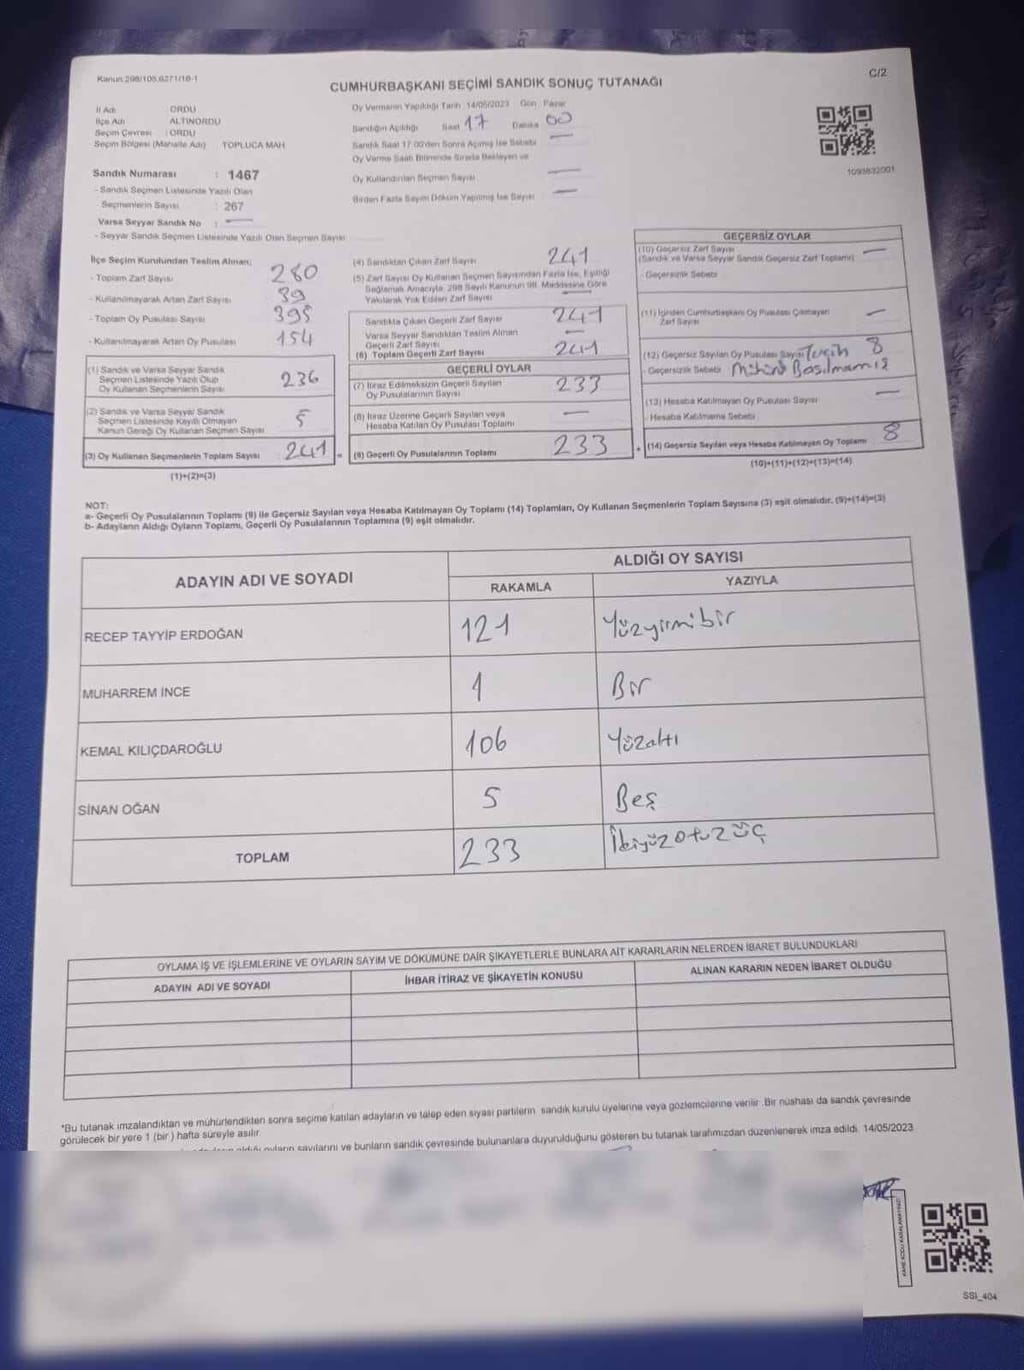 Kanun:298/105,6271/18-1
C/2
CUMHURBAŞKANI SEÇİMİ SANDIK SONUÇ TUTANAĞI
İl Adı : ORDU
İlçe Adı : ALTINORDU
Seçim Çevresi : ORDU
Seçim Bölgesi (Mahalle Adı) TOPLUCA MAH
Sandık Numarası : 1467
- Sandık Seçmen Listesinde Yazılı Olan
- Seçmenlerin Sayısı : 267
Varsa Seyyar Sandık No : —
- Seyyar Sandık Seçmen Listesinde Yazılı Olan Seçmen Sayısı
Oy Vermenin Yapıldığı Tarih 14/05/2023 Gün Pazar
Sandığın Açıldığı Saat 17 Dakika 00
Sandık Saat 17.00'den Sonra Açılmış İse Sebebi —
Oy Verme Saati Bitiminde Sırada Bekleyen ve
Oy Kullandırılan Seçmen Sayısı —
Birden Fazla Sayım Döküm Yapılmış İse Sayısı —
1093832001
İlçe Seçim Kurulundan Teslim Alınan;
- Toplam Zarf Sayısı 280
- Kullanılmayarak Artan Zarf Sayısı 39
- Toplam Oy Pusulası Sayısı 395
- Kullanılmayarak Artan Oy Pusulası 154
(1) Sandık ve Varsa Seyyar Sandık
Seçmen Listesinde Yazılı Olup
Oy Kullanan Seçmenlerin Sayısı 236
(2) Sandık ve Varsa Seyyar Sandık
Seçmen Listesinde Kayıtlı Olmayan
Kanun Gereği Oy Kullanan Seçmen Sayısı 5
(3) Oy Kullanan Seçmenlerin Toplam Sayısı 241 =
(1)+(2)=(3)
(4) Sandıktan Çıkan Zarf Sayısı 241
(5) Zarf Sayısı Oy Kullanan Seçmen Sayısından Fazla İse, Eşitliği
Sağlamak Amacıyla, 298 Sayılı Kanunun 98. Maddesine Göre
Yakılarak Yok Edilen Zarf Sayısı —
Sandıkta Çıkan Geçerli Zarf Sayısı 241
Varsa Seyyar Sandıktan Teslim Alınan
Geçerli Zarf Sayısı —
(6) Toplam Geçerli Zarf Sayısı 241
GEÇERLİ OYLAR
(7) İtiraz Edilmeksizin Geçerli Sayılan
Oy Pusulalarının Sayısı 233
(8) İtiraz Üzerine Geçerli Sayılan veya
Hesaba Katılan Oy Pusulası Toplamı —
(9) Geçerli Oy Pusulalarının Toplamı 233 +
GEÇERSİZ OYLAR
(10) Geçersiz Zarf Sayısı
(Sandık ve Varsa Seyyar Sandık Geçersiz Zarf Toplamı) —
- Geçersizlik Sebebi
(11) İçinden Cumhurbaşkanı Oy Pusulası Çıkmayan
Zarf Sayısı —
(12) Geçersiz Sayılan Oy Pusulası Sayısı Tercih 8
- Geçersizlik Sebebi Mührü Basılmamış
(13) Hesaba Katılmayan Oy Pusulası Sayısı —
- Hesaba Katılmama Sebebi
(14) Geçersiz Sayılan veya Hesaba Katılmayan Oy Toplamı 8
(10)+(11)+(12)+(13)=(14)
NOT:
a- Geçerli Oy Pusulalarının Toplamı (9) ile Geçersiz Sayılan veya Hesaba Katılmayan Oy Toplamı (14) Toplamları, Oy Kullanan Seçmenlerin Toplam Sayısına (3) eşit olmalıdır. (9)+(14)=(3)
b- Adayların Aldığı Oyların Toplamı, Geçerli Oy Pusulalarının Toplamına (9) eşit olmalıdır.
ADAYIN ADI VE SOYADI
ALDIĞI OY SAYISI
RAKAMLA YAZIYLA
RECEP TAYYİP ERDOĞAN 121 Yüzyirmibir
MUHARREM İNCE 1 Bir
KEMAL KILIÇDAROĞLU 106 Yüzaltı
SİNAN OĞAN 5 Beş
TOPLAM 233 İkiyüzotuzüç
OYLAMA İŞ VE İŞLEMLERİNE VE OYLARIN SAYIM VE DÖKÜMÜNE DAİR ŞİKAYETLERLE BUNLARA AİT KARARLARIN NELERDEN İBARET BULUNDUKLARI
ADAYIN ADI VE SOYADI İHBAR İTİRAZ VE ŞİKAYETİN KONUSU ALINAN KARARIN NEDEN İBARET OLDUĞU
*Bu tutanak imzalandıktan ve mühürlendikten sonra seçime katılan adayların ve talep eden siyasi partilerin sandık kurulu üyelerine veya gözlemcilerine verilir .Bir nüshası da sandık çevresinde
görülecek bir yere 1 (bir) hafta süreyle asılır.
aldığı oyların sayılarını ve bunların sandık çevresinde bulunanlara duyurulduğunu gösteren bu tutanak tarafımızdan düzenlenerek imza edildi. 14/05/2023
SSI_404